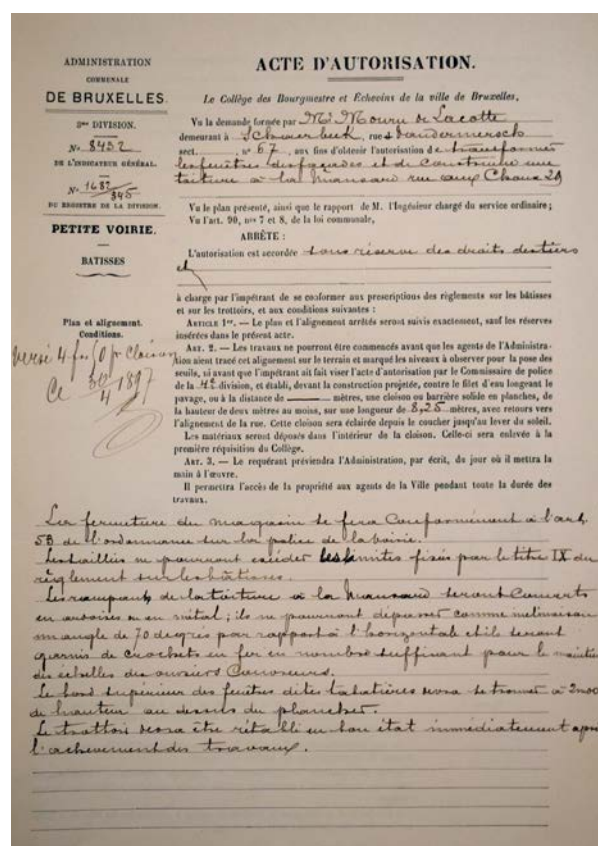 ADMINISTRATION
COMMUNALE
DE BRUXELLES.
3me DIVISION.
No 8452
DE L'INDICATEUR GÉNÉRAL.
No 1682/345
DU REGISTRE DE LA DIVISION.
PETITE VOIRIE.
BATISSES
Plan et alignement.
Conditions.
versé 4 fr. 50 pr cloison
Ce 30/4 1897
ACTE D'AUTORISATION.
Le Collège des Bourgmestre et Échevins de la ville de Bruxelles,
Vu la demande formée par Mr Mouru de Lacotte
demeurant à Schaerbeek, rue Vandermersch
sect. , no 67, aux fins d'obtenir l'autorisation de transformer
les fenêtres des façades et de construire une
toiture à la Mansard rue aux Choux 29
Vu le plan présenté, ainsi que le rapport de M. l'Ingénieur chargé du service ordinaire ;
Vu l'art. 90, nos 7 et 8, de la loi communale,
ARRÊTE :
L'autorisation est accordée sous réserve des droits des tiers
et
à charge par l'impétrant de se conformer aux prescriptions des règlements sur les bâtisses
et sur les trottoirs, et aux conditions suivantes :
ARTICLE 1er. — Le plan et l'alignement arrêtés seront suivis exactement, sauf les réserves
insérées dans le présent acte.
ART. 2. — Les travaux ne pourront être commencés avant que les agents de l'Administra-
tion aient tracé cet alignement sur le terrain et marqué les niveaux à observer pour la pose des
seuils, ni avant que l'impétrant ait fait viser l'acte d'autorisation par le Commissaire de police
de la 4e division, et établi, devant la construction projetée, contre le filet d'eau longeant le
pavage, ou à la distance de —— mètres, une cloison ou barrière solide en planches, de
la hauteur de deux mètres au moins, sur une longueur de 8,25 mètres, avec retours vers
l'alignement de la rue. Cette cloison sera éclairée depuis le coucher jusqu'au lever du soleil.
Les matériaux seront déposés dans l'intérieur de la cloison. Celle-ci sera enlevée à la
première réquisition du Collège.
ART. 3. — Le requérant préviendra l'Administration, par écrit, du jour où il mettra la
main à l'œuvre.
Il permettra l'accès de la propriété aux agents de la Ville pendant toute la durée des
travaux.
La fermeture du magasin se fera conformément à l'art.
58 de l'ordonnance sur la police de la voirie.
Les saillies ne pourront excéder les limites fixées par le titre IX du
règlement sur les bâtisses.
Les rampants de la toiture à la Mansard seront couverts
en ardoises ou en métal ; ils ne pourront dépasser comme inclinaison
un angle de 70 degrés par rapport à l'horizontale et ils seront
garnis de crochets en fer en nombre suffisant pour le maintien
des échelles des ouvriers couvreurs.
Le bord supérieur des fenêtres dites tabatières devra se trouver à 2m00
de hauteur au dessus du plancher.
Le trottoir devra être rétabli en bon état immédiatement après
l'achèvement des travaux.